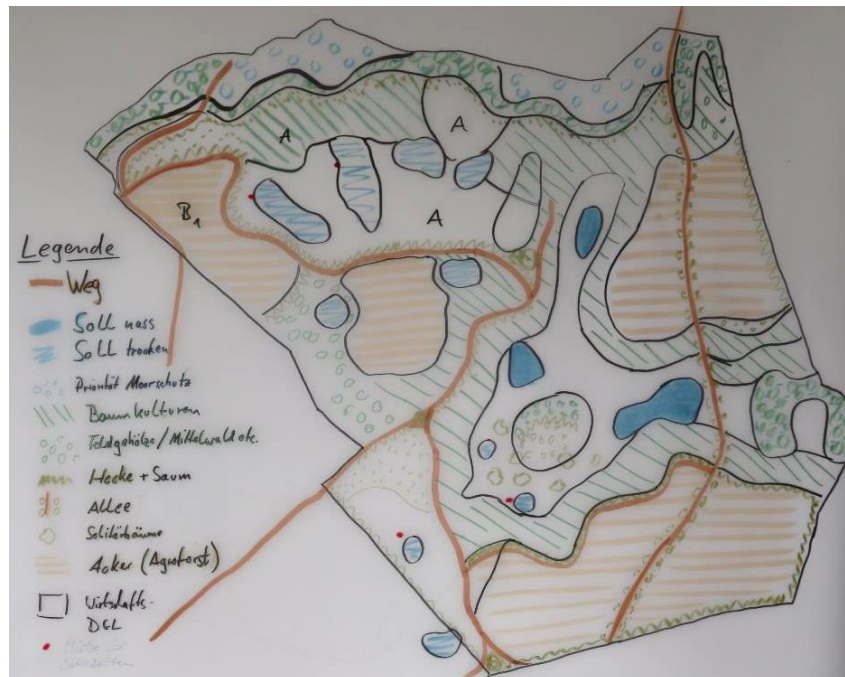 A
A
B1
A
Legende
Weg
Soll nass
Soll trocken
Priorität Moorschutz
Baumkulturen
Feldgehölze / Mittelwald etc.
Hecke + Saum
Allee
Solitärbäume
Acker (Agroforst)
Wirtschafts-
DGL